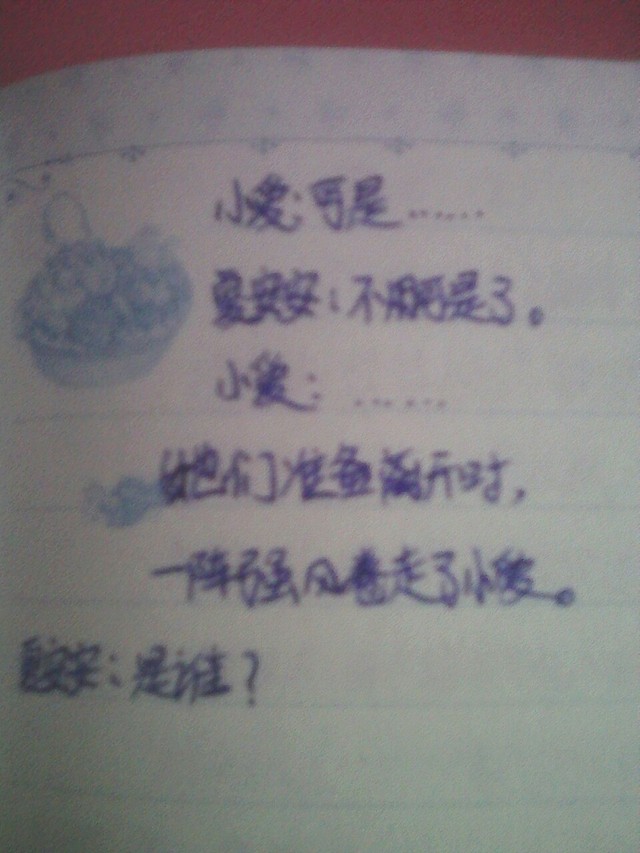 小爱:可是……
夏安安:不用可是了。
小爱:……
她们准备离开时,
一阵强风卷走了小爱。
夏安安:是谁?